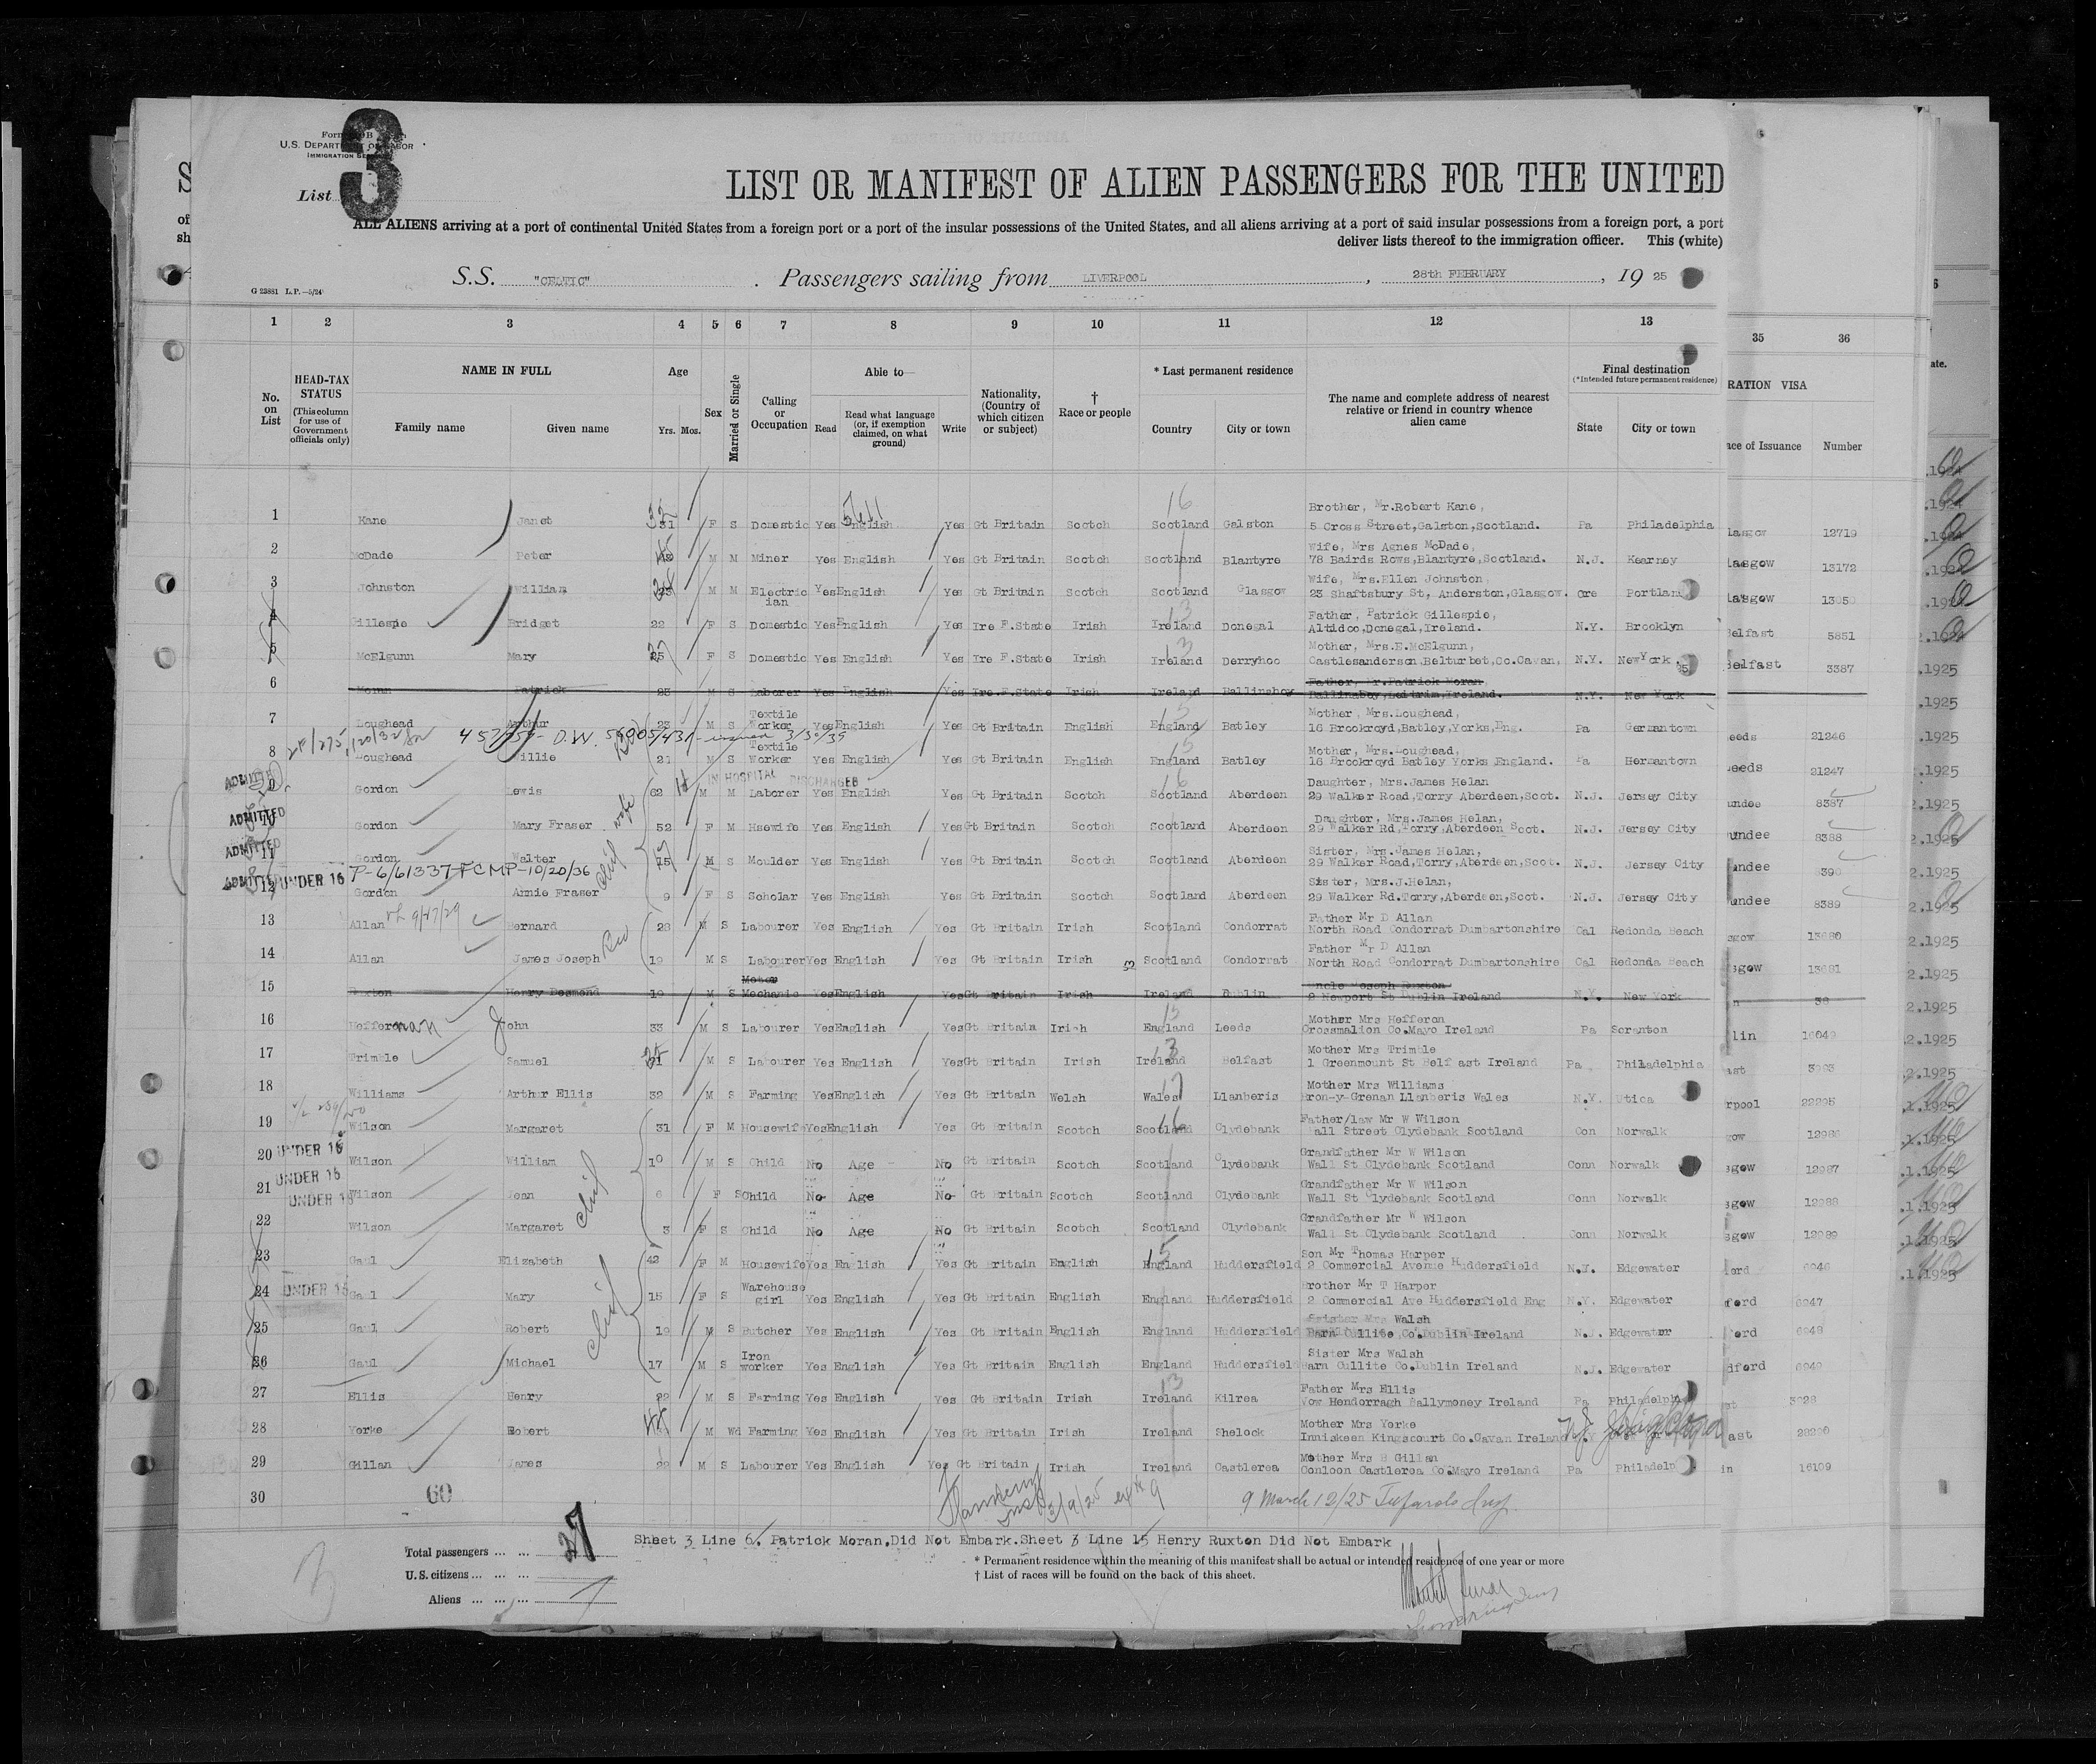 3
Form
U.S. DEPARTMENT OF LABOR
IMMIGRATION SERVICE
List
LIST OR MANIFEST OF ALIEN PASSENGERS FOR THE UNITED
ALL ALIENS arriving at a port of continental United States from a foreign port or a port of the insular possessions of the United States, and all aliens arriving at a port of said insular possessions from a foreign port, a port
deliver lists thereof to the immigration officer. This (white)
S.S. "CELTIC". Passengers sailing from LIVERPOOL, 28th FEBRUARY, 19 25
G 23881 L.P.—5/24
1 2 3 4 5 6 7 8 9 10 11 12 13 35 36
No. on List
HEAD-TAX STATUS (This column for use of Government officials only)
NAME IN FULL
Family name Given name
Age Yrs. Mos.
Sex
Married or Single
Calling or Occupation
Able to—
Read Read what language (or, if exemption claimed, on what ground) Write
Nationality, (Country of which citizen or subject)
† Race or people
* Last permanent residence
Country City or town
The name and complete address of nearest relative or friend in country whence alien came
Final destination (*Intended future permanent residence)
State City or town
RATION VISA
ace of Issuance Number
1 Kane Janet 31 F S Domestic Yes English Yes Gt Britain Scotch Scotland Galston Brother, Mr.Robert Kane, 5 Cross Street,Galston,Scotland. Pa Philadelphia lasgow 12719
2 McDade Peter M M Miner Yes English Yes Gt Britain Scotch Scotland Blantyre Wife, Mrs Agnes McDade, 78 Bairds Rows,Blantyre,Scotland. N.J. Kearney lasgow 13172
3 Johnston William M M Electrician Yes English Yes Gt Britain Scotch Scotland Glasgow Wife, Mrs.Ellen Johnston, 23 Shaftsbury St, Anderston,Glasgow. Ore Portland lasgow 13050
4 Gillespie Bridget 22 F S Domestic Yes English Yes Ire F.State Irish Ireland Donegal Father, Patrick Gillespie, Altidoo,Donegal,Ireland. N.Y. Brooklyn Belfast 5851
5 McElgunn Mary 25 F S Domestic Yes English Yes Ire F.State Irish Ireland Derryhoo Mother, Mrs.E.McElgunn, Castlesanderson,Belturbet,Co.Cavan, N.Y. NewYork Belfast 3387
6 Moran Patrick 23 M S Laborer Yes English Yes Ire.F.State Irish Ireland Ballinaboy Father, Mr.Patrick Moran, Ballinaboy,Leitrim,Ireland. N.Y. New York
7 Loughead Arthur 23 M S Textile Worker Yes English Yes Gt Britain English England Batley Mother, Mrs.Loughead, 16 Brookroyd,Batley,Yorks,Eng. Pa Germantown eeds 21246
8 Loughead Willie 21 M S Textile Worker Yes English Yes Gt Britain English England Batley Mother, Mrs.Loughead, 16 Brookroyd Batley Yorks England. Pa Hermantown eeds 21247
IN HOSPITAL DISCHARGED
ADMITTED
9 Gordon Lewis 62 M M Laborer Yes English Yes Gt Britain Scotch Scotland Aberdeen Daughter, Mrs.James Helan 29 Walker Road,Torry Aberdeen,Scot. N.J. Jersey City undee 8387
ADMITTED
10 Gordon Mary Fraser 52 F M Hsewife Yes English Yes Gt Britain Scotch Scotland Aberdeen Daughter, Mrs.James Helan, 29 Walker Rd,Torry,Aberdeen Scot. N.J. Jersey City undee 8388
ADMITTED
11 Gordon Walter M S Moulder Yes English Yes Gt Britain Scotch Scotland Aberdeen Sister, Mrs.James Helan, 29 Walker Road,Torry,Aberdeen,Scot. N.J. Jersey City undee 390
ADMITTED UNDER 16 P-6/61337-FCMP-10/20/36
12 Gordon Annie Fraser 9 F S Scholar Yes English Yes Gt Britain Scotch Scotland Aberdeen Sister, Mrs.J.Helan, 29 Walker Rd.Torry,Aberdeen,Scot. N.J. Jersey City undee 8389
13 Allan Bernard 28 M S Labourer Yes English Yes Gt Britain Irish Scotland Condorrat Father Mr D Allan North Road Condorrat Dumbartonshire Cal Redonda Beach sgow 13680
14 Allan James Joseph 19 M S Labourer Yes English Yes Gt Britain Irish Scotland Condorrat Father Mr D Allan North Road Condorrat Dumbartonshire Cal Redonda Beach sgow 13681
15 Ruxton Henry Desmond 19 M S Motor Mechanic Yes English Yes Gt Britain Irish Ireland Dublin Uncle Joseph Ruxton 2 Newport St Dublin Ireland N.Y. New York
16 Heffernan John 33 M S Labourer Yes English Yes Gt Britain Irish England Leeds Mother Mrs Hefferon Crossmalion Co.Mayo Ireland Pa Scranton lin 16049
17 Trimble Samuel M S Labourer Yes English Yes Gt Britain Irish Ireland Belfast Mother Mrs Trimble 1 Greenmount St Belfast Ireland Pa Philadelphia ast
18 Williams Arthur Ellis 32 M S Farming Yes English Yes Gt Britain Welsh Wales Llanberis Mother Mrs Williams Bron-y-Grenan Llanberis Wales N.Y. Utica rpool 22295
19 Wilson Margaret 31 F M Housewife Yes English Yes Gt Britain Scotch Scotland Clydebank Father/law Mr W Wilson Wall Street Clydebank Scotland Con Norwalk gow 12986
20 UNDER 16 Wilson William 10 M S Child No Age No Gt Britain Scotch Scotland Clydebank Grandfather Mr W Wilson Wall St Clydebank Scotland Conn Norwalk sgow 12987
21 UNDER 16 Wilson Jean 6 F S Child No Age No Gt Britain Scotch Scotland Clydebank Grandfather Mr W Wilson Wall St Clydebank Scotland Conn Norwalk sgow 12988
UNDER 16
22 Wilson Margaret 3 F S Child No Age No Gt Britain Scotch Scotland Clydebank Grandfather Mr W Wilson Wall St Clydebank Scotland Conn Norwalk sgow 12989
23 Gaul Elizabeth 42 F M Housewife Yes English Yes Gt Britain English England Huddersfield Son Mr Thomas Harper 2 Commercial Avenue Huddersfield N.Y. Edgewater ford 6046
24 UNDER 16 Gaul Mary 15 F S Warehouse girl Yes English Yes Gt Britain English England Huddersfield Brother Mr T Harper 2 Commercial Ave Huddersfield Eng N.Y. Edgewater ford 6047
25 Gaul Robert 19 M S Butcher Yes English Yes Gt Britain English England Huddersfield Sister Mrs Walsh Barn Cullite,Co.Dublin Ireland N.J. Edgewater ford 6048
26 Gaul Michael 17 M S Iron worker Yes English Yes Gt Britain English England Huddersfield Sister Mrs Walsh Barn Cullite Co.Dublin Ireland N.J. Edgewater dford 6049
27 Ellis Henry 22 M S Farming Yes English Yes Gt Britain Irish Ireland Kilrea Father Mrs Ellis Vow Hendorragh Ballymoney Ireland Pa Philadelphia st
28 Yorke Robert M Wd Farming Yes English Yes Gt Britain Irish Ireland Shelock Mother Mrs Yorke Inniskeen Kingscourt Co.Cavan Ireland ast
29 Gillan James 22 M S Labourer Yes English Yes Gt Britain Irish Ireland Castlerea Mother Mrs B Gillan Conloon Castlerea Co.Mayo Ireland Pa Philadelp in 16109
30 60
9 March 19/25
Sheet 3 Line 6. Patrick Moran,Did Not Embark.Sheet 3 Line 15 Henry Ruxton Did Not Embark
Total passengers ... ... 27
U.S. citizens ... ... ...
Aliens ... ... ...
* Permanent residence within the meaning of this manifest shall be actual or intended residence of one year or more
† List of races will be found on the back of this sheet.